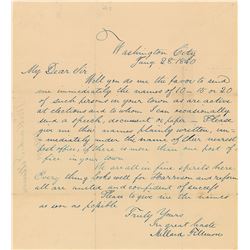 Washington City
Jany 28 1840
My Dear Sir
Will you do me the favor to send
me immediately the names of 10-15 or 20
of such persons in your town as are active
at elections and to whom I can occasionally
send a speech, document or paper - Please
give me their names plainly written, and
immediately under the name of their nearest
post office, if there is more than one post of
fice in your town
We are all in fine spirits here
Every thing looks well for Harrison and reform
all are united and confident of success
Please to give me the names
as soon as possible
Truly Yours
In great haste
Millard Fillmore